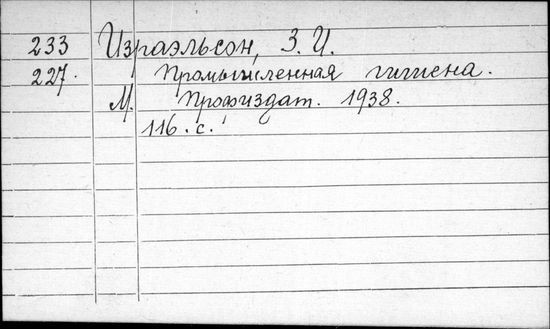 233 Израэльсон, З. И.
227. Промышленная гигиена.
М. Профиздат. 1938.
116. с.